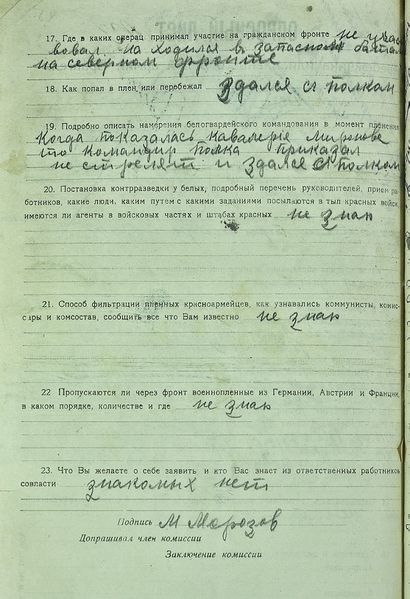 17. Где в каких операц принимал участие на гражданском фронте не учас
вовал. на ходился в запасном батал
на северном фронте
18. Как попал в плен, или перебежал здался с полкам
19. Подробно описать намерения белогвардейского командования в момент пленения
когда показалась кавалерие Миронове
то командир полка приказал
не стрелят и здался с полком
20. Постановка контрразведки у белых, подробный перечень руководителей, прием ра-
ботников, какие люди, каким путем с какими заданиями посылаются в тыл красных войск,
имеются ли агенты в войсковых частях и штабах красных не знаю
21. Способ фильтрации пленных красноармейцев, как узнавались коммунисты, комис-
сары и комсостав, сообщить все что Вам известно не знаю
22 Пропускаются ли через фронт военнопленные из Германии, Австрии и Франции
в каком порядке, количестве и где не знаю
23. Что Вы желаете о себе заявить и кто Вас знает из ответственных работников
совласти знакомых нет
Подпись М Морозов
Допрашивал член комиссии
Заключение комиссии